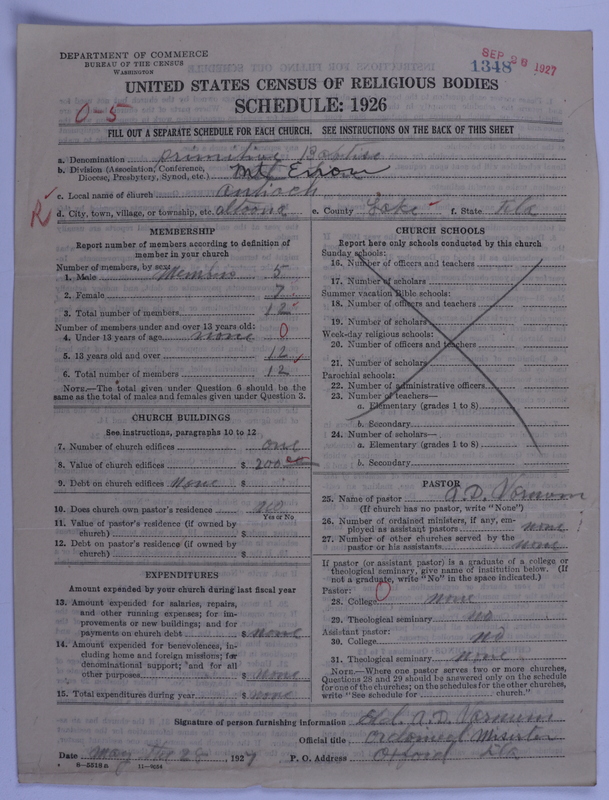 DEPARTMENT OF COMMERCE
BUREAU OF THE CENSUS
WASHINGTON
SEP 26 1927
1348
UNITED STATES CENSUS OF RELIGIOUS BODIES
SCHEDULE: 1926
0-5
FILL OUT A SEPARATE SCHEDULE FOR EACH CHURCH. SEE INSTRUCTIONS ON THE BACK OF THIS SHEET
a. Denomination primitive Baptist
b. Division (Association, Conference,
Diocese, Presbytery, Synod, etc.) Mt Enon
c. Local name of church antioch
R d. City, town, village, or township, etc. altoona e. County Lake f. State Fla
MEMBERSHIP
Report number of members according to definition of
member in your church
Number of members, by sex:
1. Male members 5
2. Female 7
3. Total number of members 12
Number of members under and over 13 years old:
4. Under 13 years of age none 0
5. 13 years old and over 12
6. Total number of members 12
NOTE.—The total given under Question 6 should be the
same as the total of males and females given under Question 3.
CHURCH BUILDINGS
See instructions, paragraphs 10 to 12
7. Number of church edifices one
8. Value of church edifices $ 200 00
9. Debt on church edifices none $
10. Does church own pastor's residence? no
Yes or No
11. Value of pastor's residence (if owned by
church) $
12. Debt on pastor's residence (if owned by
church) $
EXPENDITURES
Amount expended by your church during last fiscal year
13. Amount expended for salaries, repairs,
and other running expenses; for im-
provements or new buildings; and for
payments on church debt $ none
14. Amount expended for benevolences, in-
cluding home and foreign missions; for
denominational support; and for all
other purposes $ none
15. Total expenditures during year $ none
CHURCH SCHOOLS
Report here only schools conducted by this church
Sunday schools:
16. Number of officers and teachers
17. Number of scholars
Summer vacation Bible schools:
18. Number of officers and teachers
19. Number of scholars
Week-day religious schools:
20. Number of officers and teachers
21. Number of scholars
Parochial schools:
22. Number of administrative officers
23. Number of teachers—
a. Elementary (grades 1 to 8)
b. Secondary
24. Number of scholars—
a. Elementary (grades 1 to 8)
b. Secondary
PASTOR
25. Name of pastor A.D. Varnum
(If church has no pastor, write "None")
26. Number of ordained ministers, if any, em-
ployed as assistant pastors none
27. Number of other churches served by the
pastor or his assistants none
If pastor (or assistant pastor) is a graduate of a college or
theological seminary, give name of institution below. (If
not a graduate, write "No" in the space indicated.)
Pastor:
28. College 0 none
29. Theological seminary no
Assistant pastor:
30. College no
31. Theological seminary none
NOTE.—Where one pastor serves two or more churches,
Questions 28 and 29 should be answered only on the schedule
for one of the churches; on the schedules for the other churches,
write "See schedule for church."
Signature of person furnishing information Eld. A.D. Varnum
Official title Minister
Date may the 28, 1927 P. O. Address Oxford Fla
8-5518a 11-8684